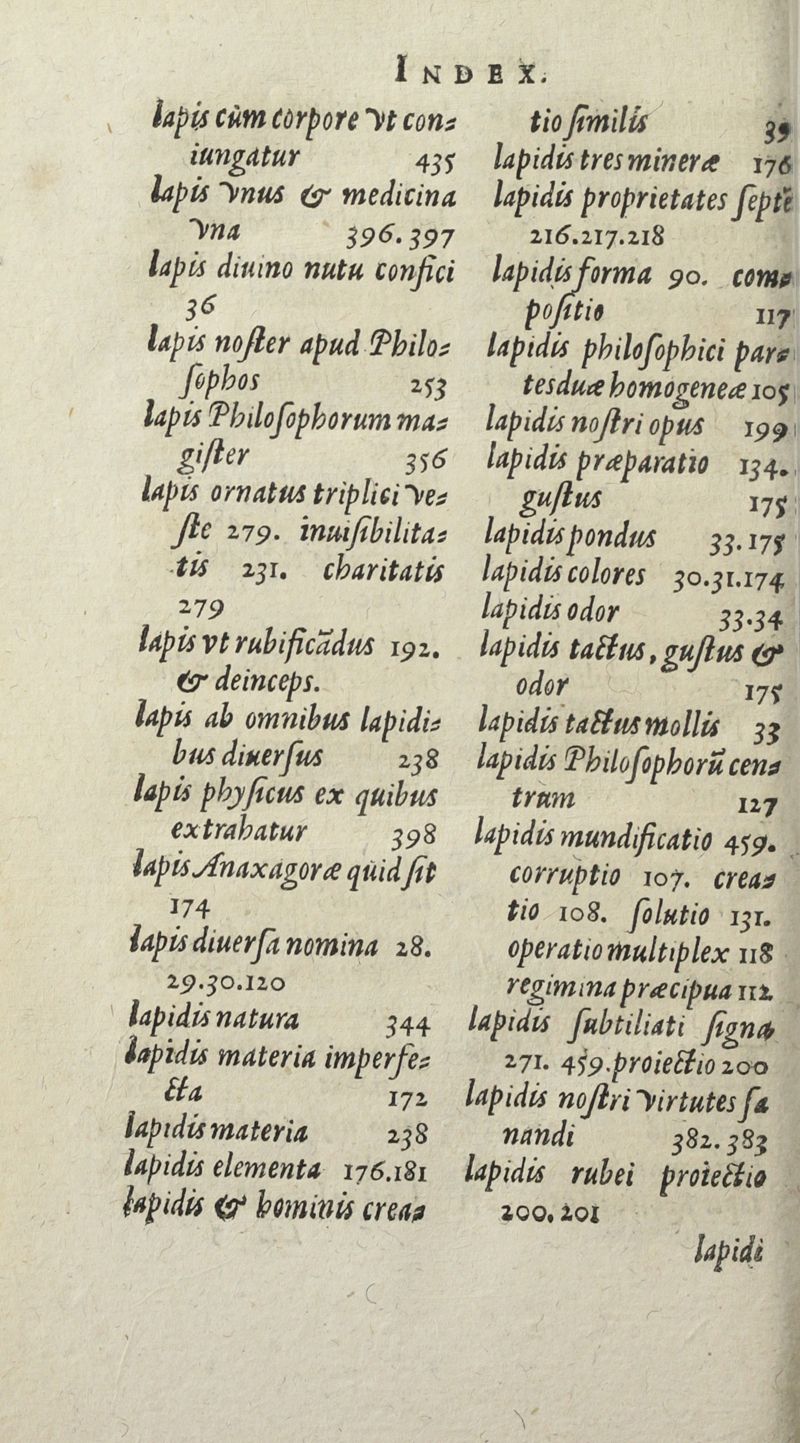 INDEX.
lapis cùm corpore vt con=
iungatur 435
lapis vnus & medicina
vna 396.397
lapis diuino nutu confici
36
lapis noſter apud Philo=
ſophos 253
lapis Philoſophorum ma=
giſter 356
lapis ornatus triplici ve=
ſte 279. inuiſibilita=
tis 231. charitatis
279
lapis vt rubificādus 192.
& deinceps.
lapis ab omnibus lapidi=
bus diuerſus 238
lapis phyſicus ex quibus
extrahatur 398
lapis Anaxagoræ quid ſit
174
lapis diuerſa nomina 28.
29.30.120
lapidis natura 344
lapidis materia imperfe=
cta 172
lapidis materia 238
lapidis elementa 176.181
lapidis & hominis crea=
tio ſimilis 39
lapidis tres mineræ 176
lapidis proprietates ſeptē
216.217.218
lapidis forma 90. com=
poſitio 117
lapidis philoſophici par=
tes duæ homogeneæ 105
lapidis noſtri opus 199
lapidis præparatio 134.
guſtus 175
lapidis pondus 33.175
lapidis colores 30.31.174
lapidis odor 33.34
lapidis tactus, guſtus &
odor 175
lapidis tactus mollis 33
lapidis Philoſophorū cen=
trum 127
lapidis mundificatio 459.
corruptio 107. crea=
tio 108. ſolutio 131.
operatio multiplex 118
regimina præcipua 112
lapidis ſubtiliati ſigna
271. 459. proiectio 200
lapidis noſtri virtutes ſa
nandi 382.383
lapidis rubei proiectio
200, 201
lapidi